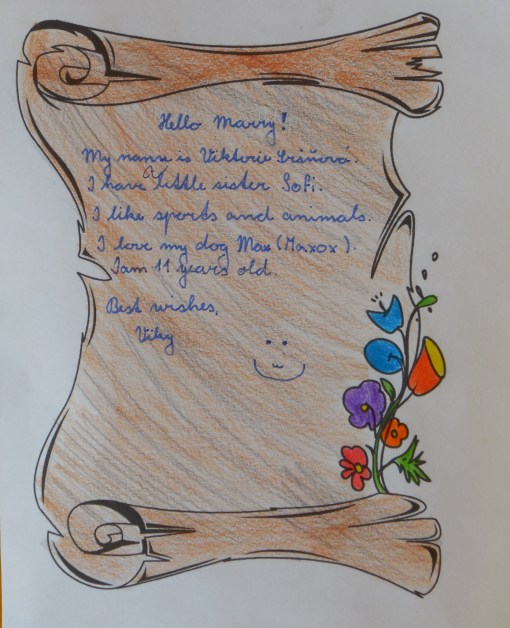 Hello Marry!
My name is Viktorie
I have a little sister Sofi.
I like sports and animals.
I love my dog Max (Maxox).
I am 11 years old.
Best wishes,
Viky